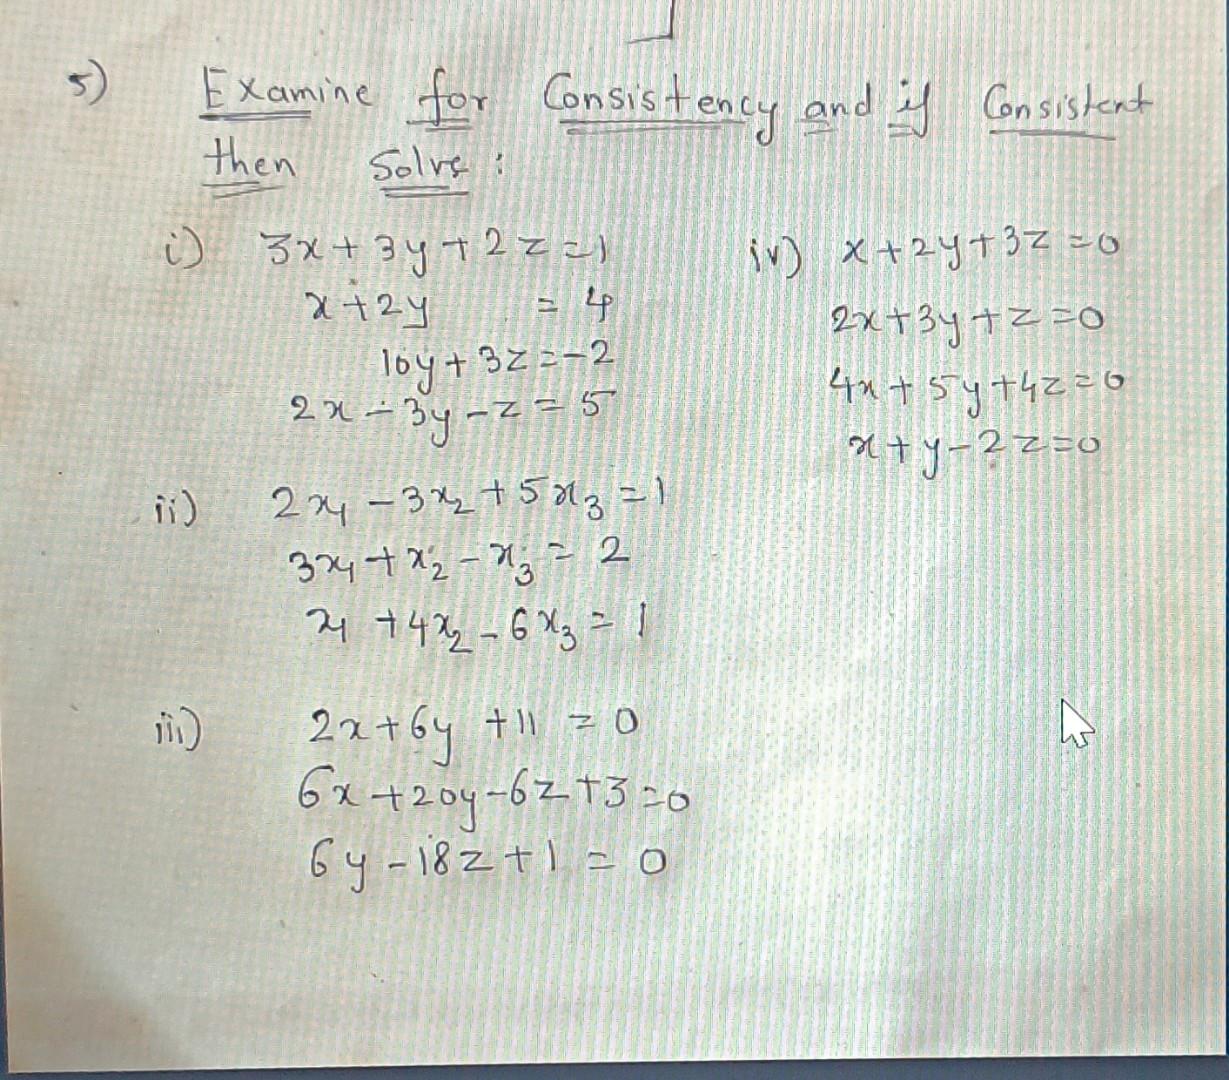 5) Examine for Consistency and if Consistent
then Solve :
i) 3x + 3y + 2z = 1
x + 2y = 4
10y + 3z = -2
2x - 3y - z = 5
ii) 2x₁ - 3x₂ + 5x₃ = 1
3x₁ + x₂ - x₃ = 2
x₁ + 4x₂ - 6x₃ = 1
iii) 2x + 6y + 11 = 0
6x + 20y - 6z + 3 = 0
6y - 18z + 1 = 0
iv) x + 2y + 3z = 0
2x + 3y + z = 0
4x + 5y + 4z = 0
x + y - 2z = 0